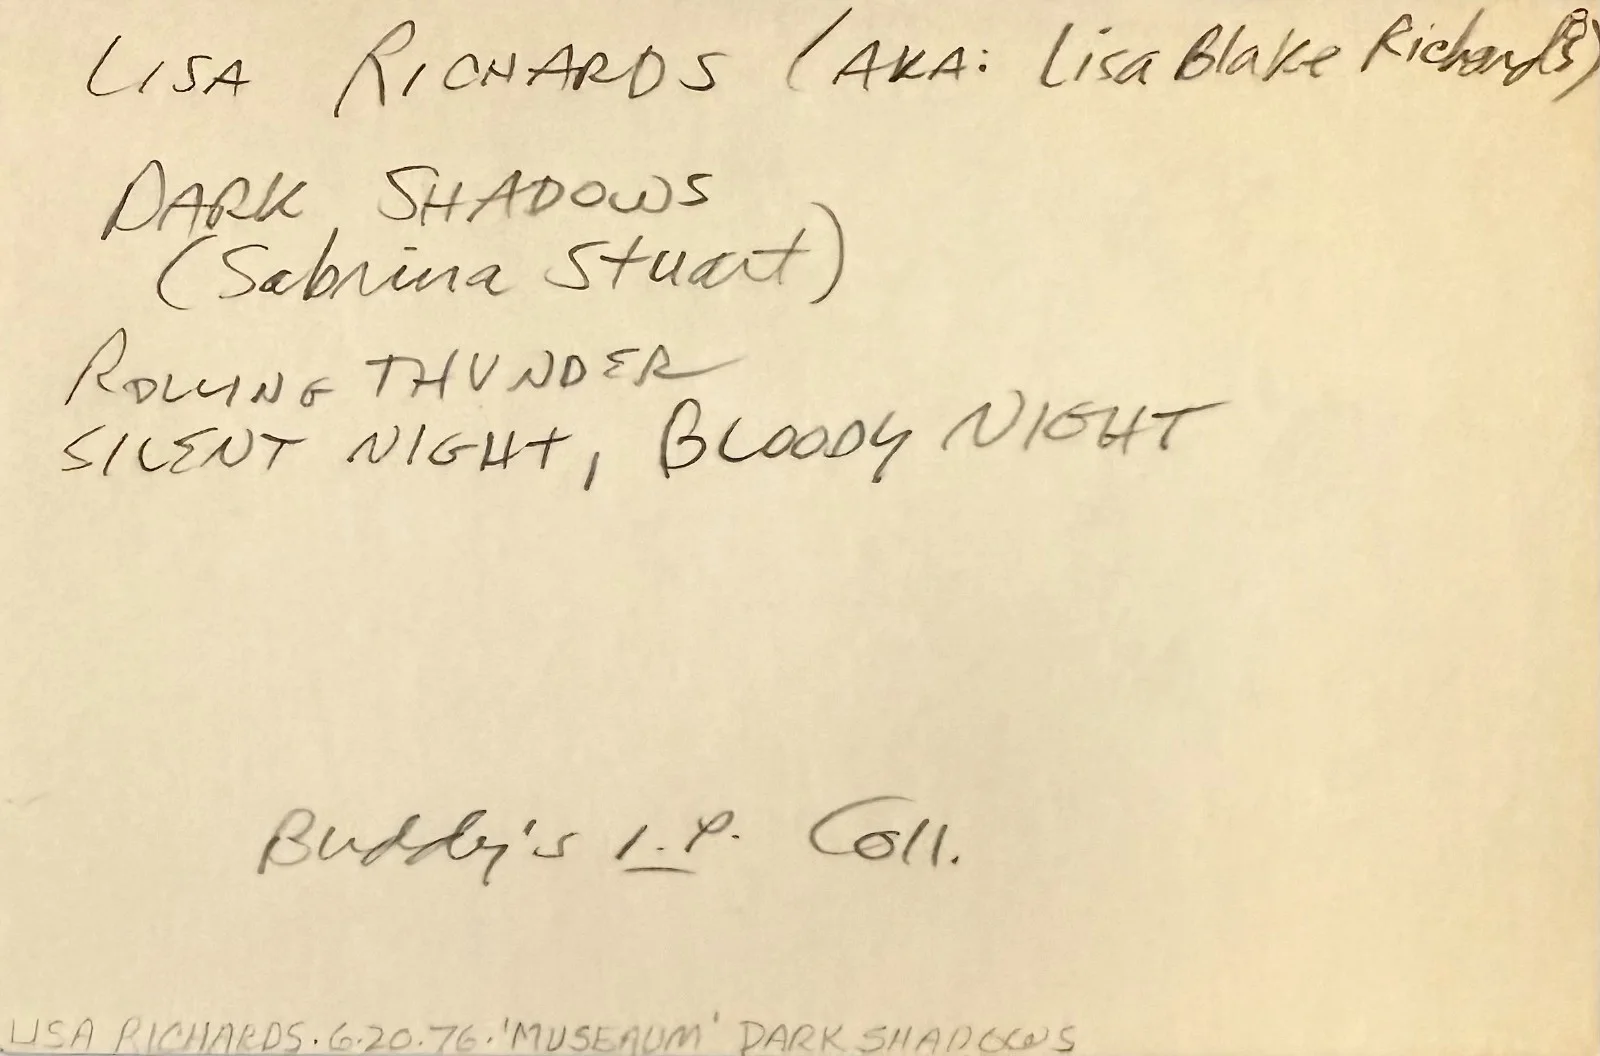 LISA RICHARDS (AKA: Lisa Blake Richards)
DARK SHADOWS
(Sabrina Stuart)
ROLLING THUNDER
SILENT NIGHT, BLOODY NIGHT
Buddy's I.P. Coll.
LISA RICHARDS. 6.20.76. 'MUSEAUM' DARK SHADOWS